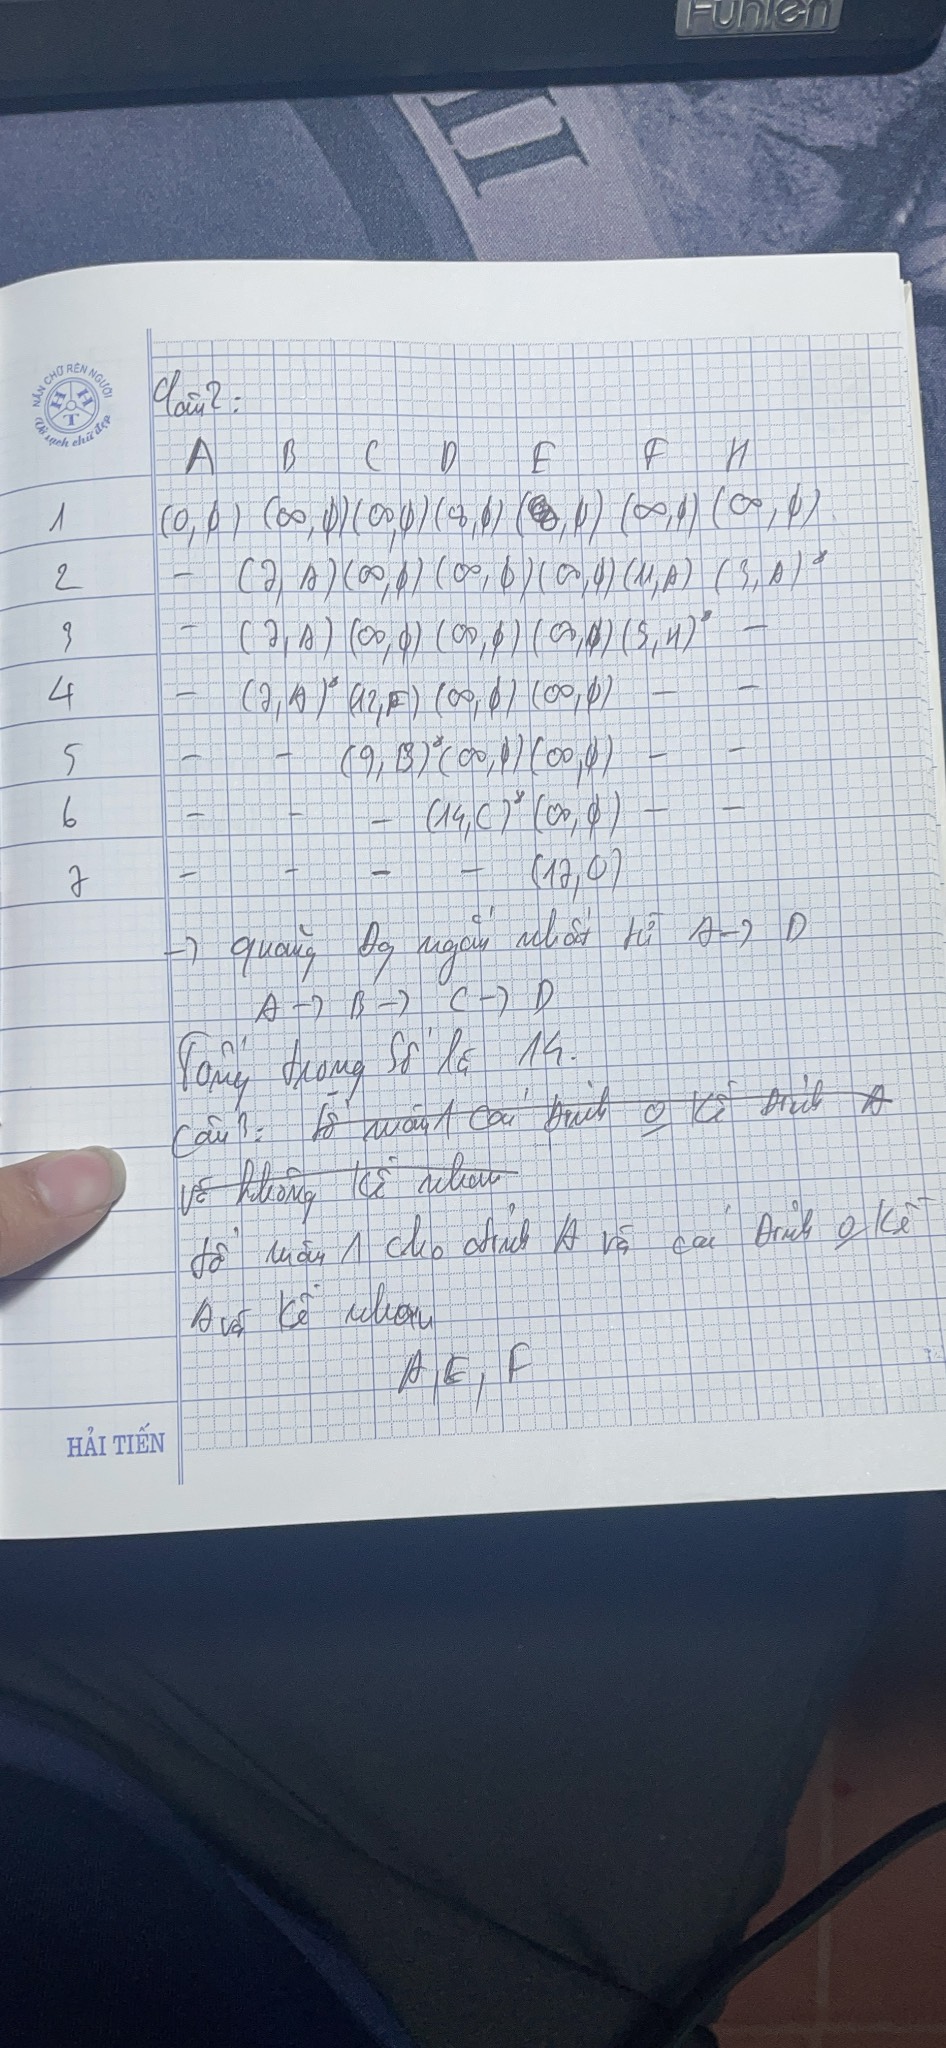 Fuhlen
NẮN CHỮ RÈN NGƯỜI
H H
T
Vở sạch chữ đẹp
Câu 2:
A B C D E F H
1 (0, ϕ) (∞, ϕ) (∞, ϕ) (∞, ϕ) (∞, ϕ) (∞, ϕ) (∞, ϕ)
2 - (7, A) (∞, ϕ) (∞, ϕ) (∞, ϕ) (11, A) (3, A)*
3 - (7, A) (∞, ϕ) (∞, ϕ) (∞, ϕ) (5, H)* -
4 - (7, A)* (12, F) (∞, ϕ) (∞, ϕ) - -
5 - - (9, B)* (∞, ϕ) (∞, ϕ) - -
6 - - - (14, C)* (∞, ϕ) - -
7 - - - - (17, D)
→ quãng đg ngắn nhất từ A → D
A → B → C → D
Tổng trọng số là 14.
Câu 3: tô màu 1 các đỉnh o kề đỉnh A
và không kề nhau
tô màu 1 cho đỉnh A và các đỉnh o kề
A và kề nhau
A, E, F
HẢI TIẾN